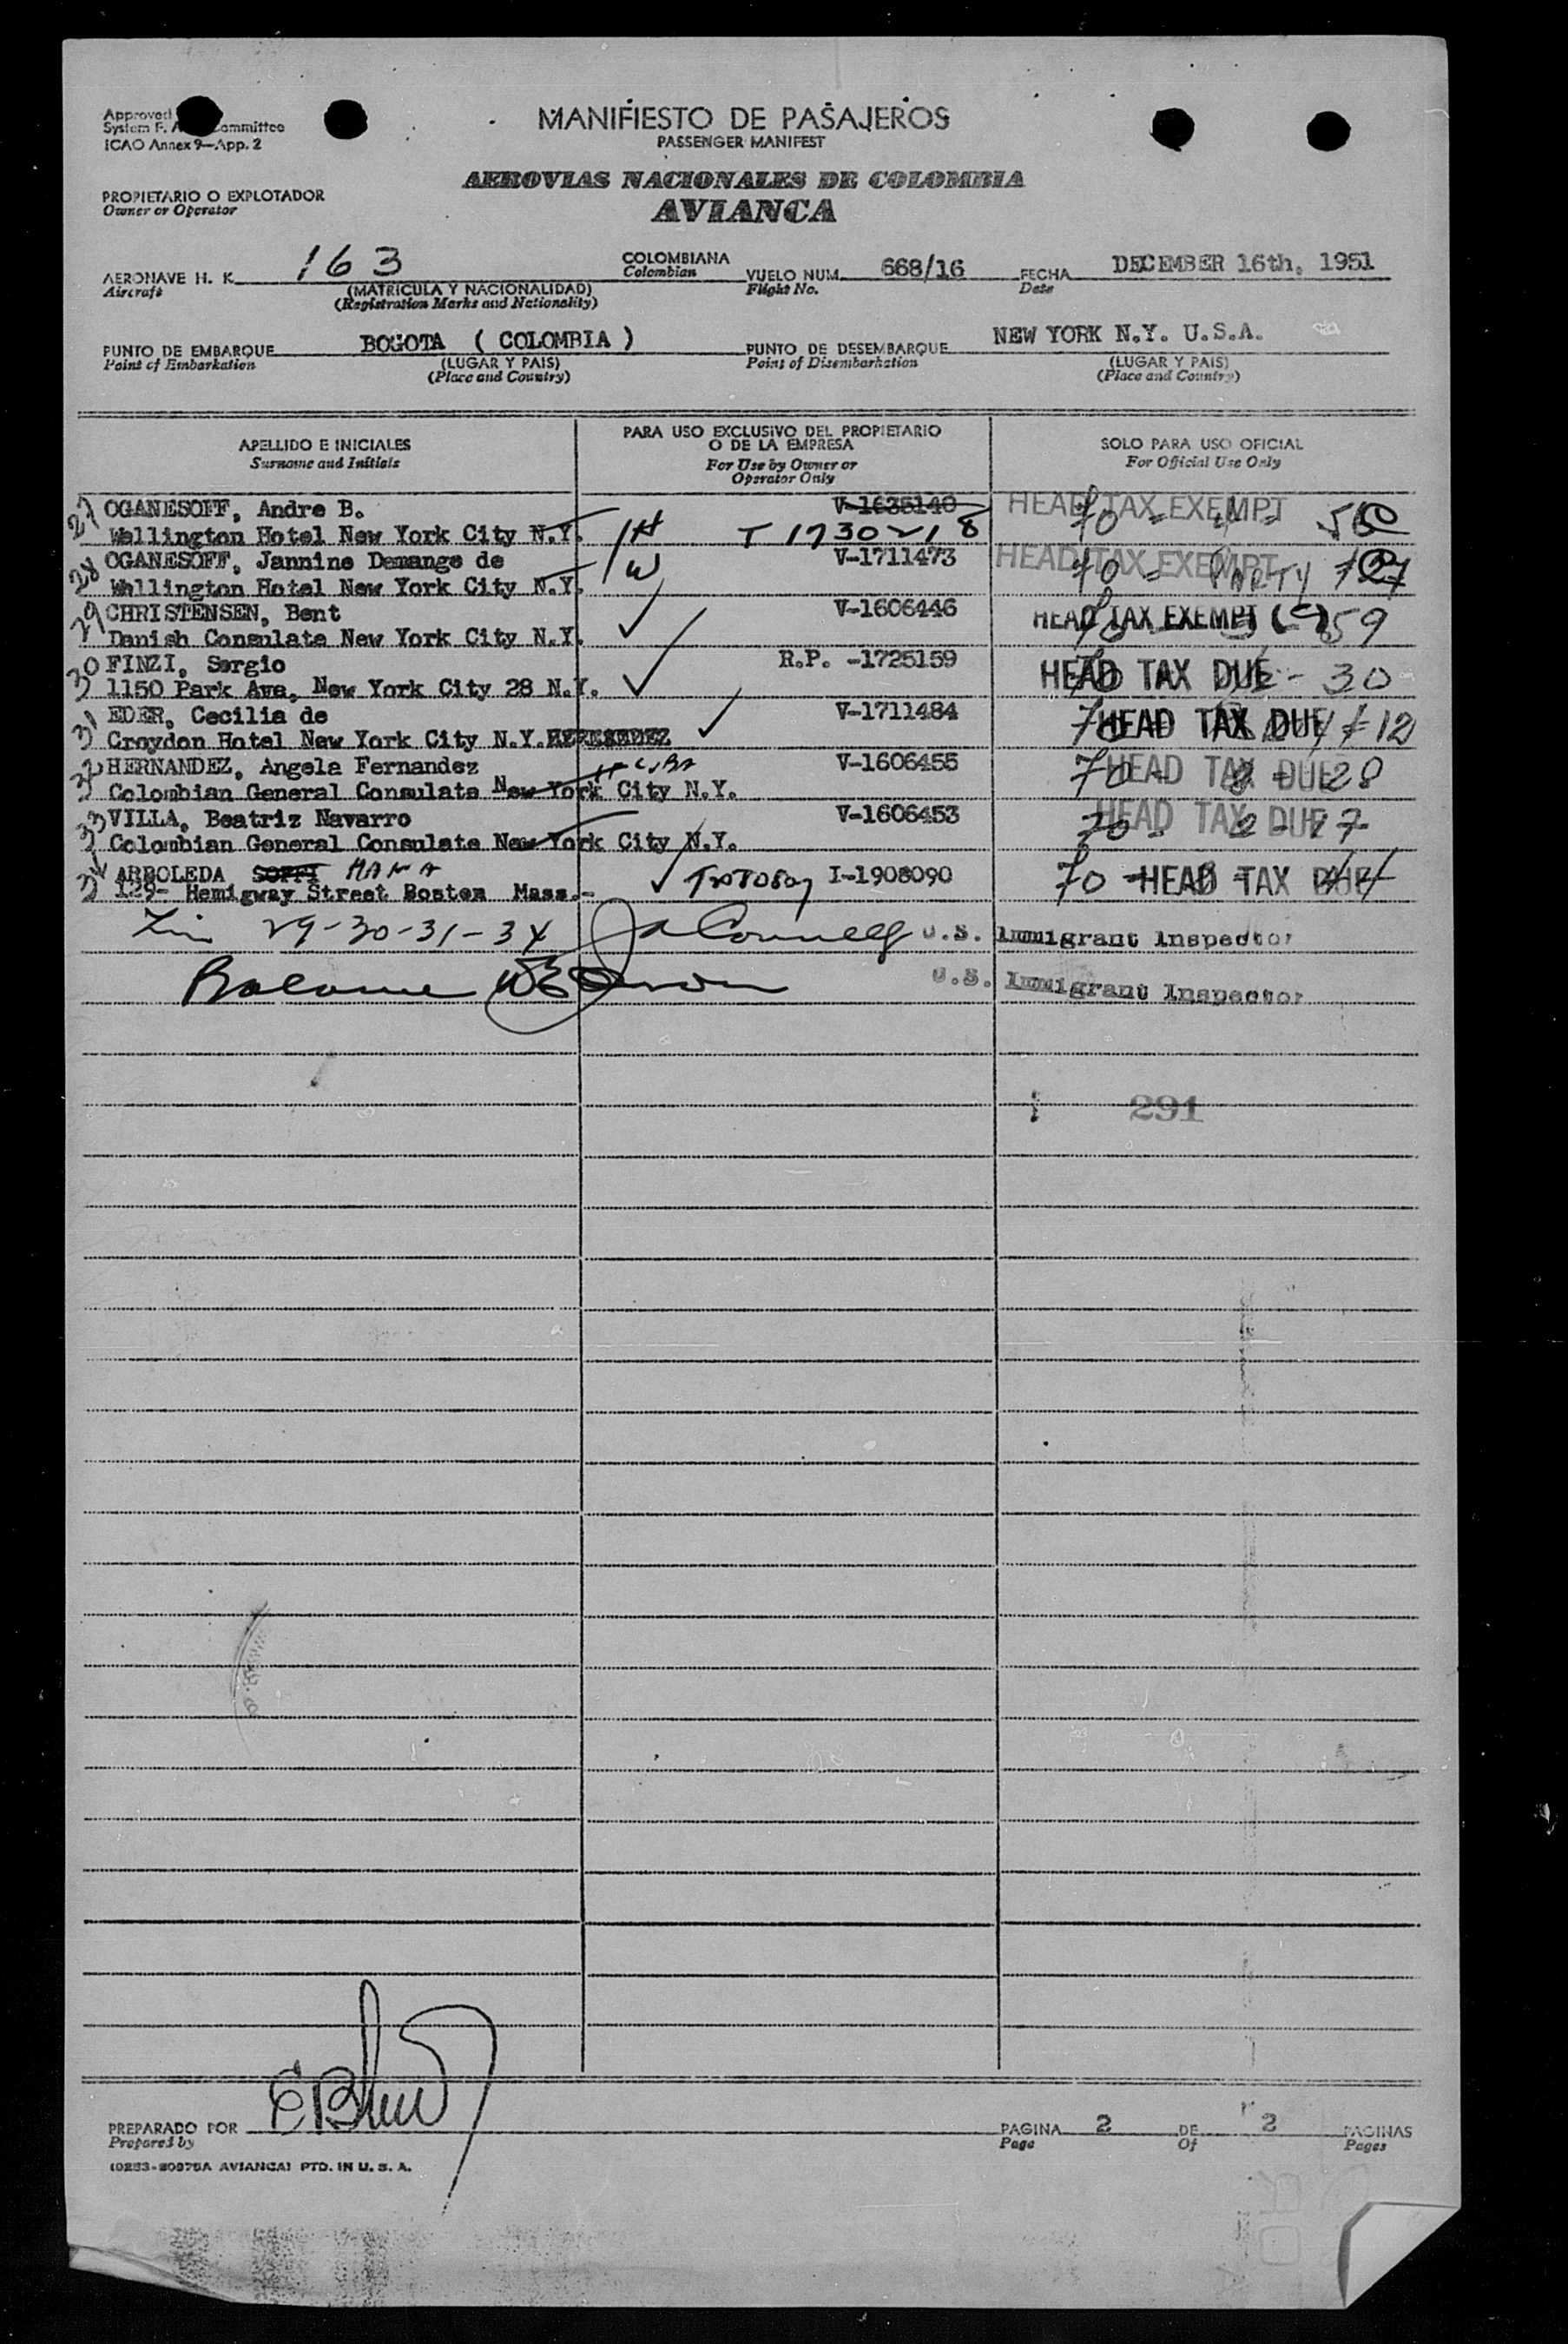 Approved
System F. A. Committee
ICAO Annex 9—App. 2
MANIFIESTO DE PASAJEROS
PASSENGER MANIFEST
AEROVIAS NACIONALES DE COLOMBIA
AVIANCA
PROPIETARIO O EXPLOTADOR
Owner or Operator
AERONAVE H. K. 163 COLOMBIANA VUELO NUM. 668/16 FECHA DECEMBER 16th, 1951
Aircraft (MATRICULA Y NACIONALIDAD) Colombian Flight No. Date
(Registration Marks and Nationality)
PUNTO DE EMBARQUE BOGOTA ( COLOMBIA ) PUNTO DE DESEMBARQUE NEW YORK N.Y. U.S.A.
Point of Embarkation (LUGAR Y PAIS) Point of Disembarkation (LUGAR Y PAIS)
(Place and Country) (Place and Country)
APELLIDO E INICIALES
Surname and Initials
PARA USO EXCLUSIVO DEL PROPIETARIO
O DE LA EMPRESA
For Use by Owner or
Operator Only
SOLO PARA USO OFICIAL
For Official Use Only
27 OGANESOFF, Andre B. V-1635140 HEAD TAX EXEMPT
Wellington Hotel New York City N.Y. 1H T 1730218 70
28 OGANESOFF, Jannine Demange de V-1711473 HEAD TAX EXEMPT
Wellington Hotel New York City N.Y. 1W 70 - PARTY
29 CHRISTENSEN, Bent V-1606446 HEAD TAX EXEMPT (9) 59
Danish Consulate New York City N.Y.
30 FINZI, Sergio R.P. -1725159 HEAD TAX DUE - 30
1150 Park Ave, New York City 28 N.Y.
31 EDER, Cecilia de V-1711484 70 HEAD TAX DUE 12
Croydon Hotel New York City N.Y.
32 HERNANDEZ, Angela Fernandez V-1606455 70 - HEAD TAX DUE 28
Colombian General Consulate New York City N.Y.
33 VILLA, Beatriz Navarro V-1606453 70 - HEAD TAX DUE 27
Colombian General Consulate New York City N.Y.
34 ARBOLEDA SOFFI I-1908090 70 HEAD TAX DUE
129- Hemigway Street Boston Mass.-
29-30-31-34 U.S. Immigrant Inspector
Balance U.S. Immigrant Inspector
291
PREPARADO POR PAGINA 2 DE 2 PAGINAS
Prepared by Page Of Pages
(0253-20975A AVIANCA) PTD. IN U. S. A.